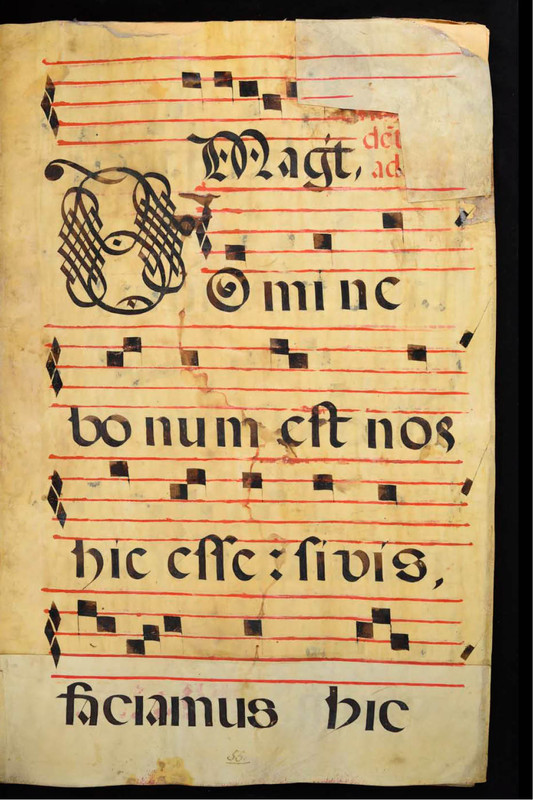 Magt,
ad
Domine
bonum est nos
hic esse: si vis,
faciamus hic